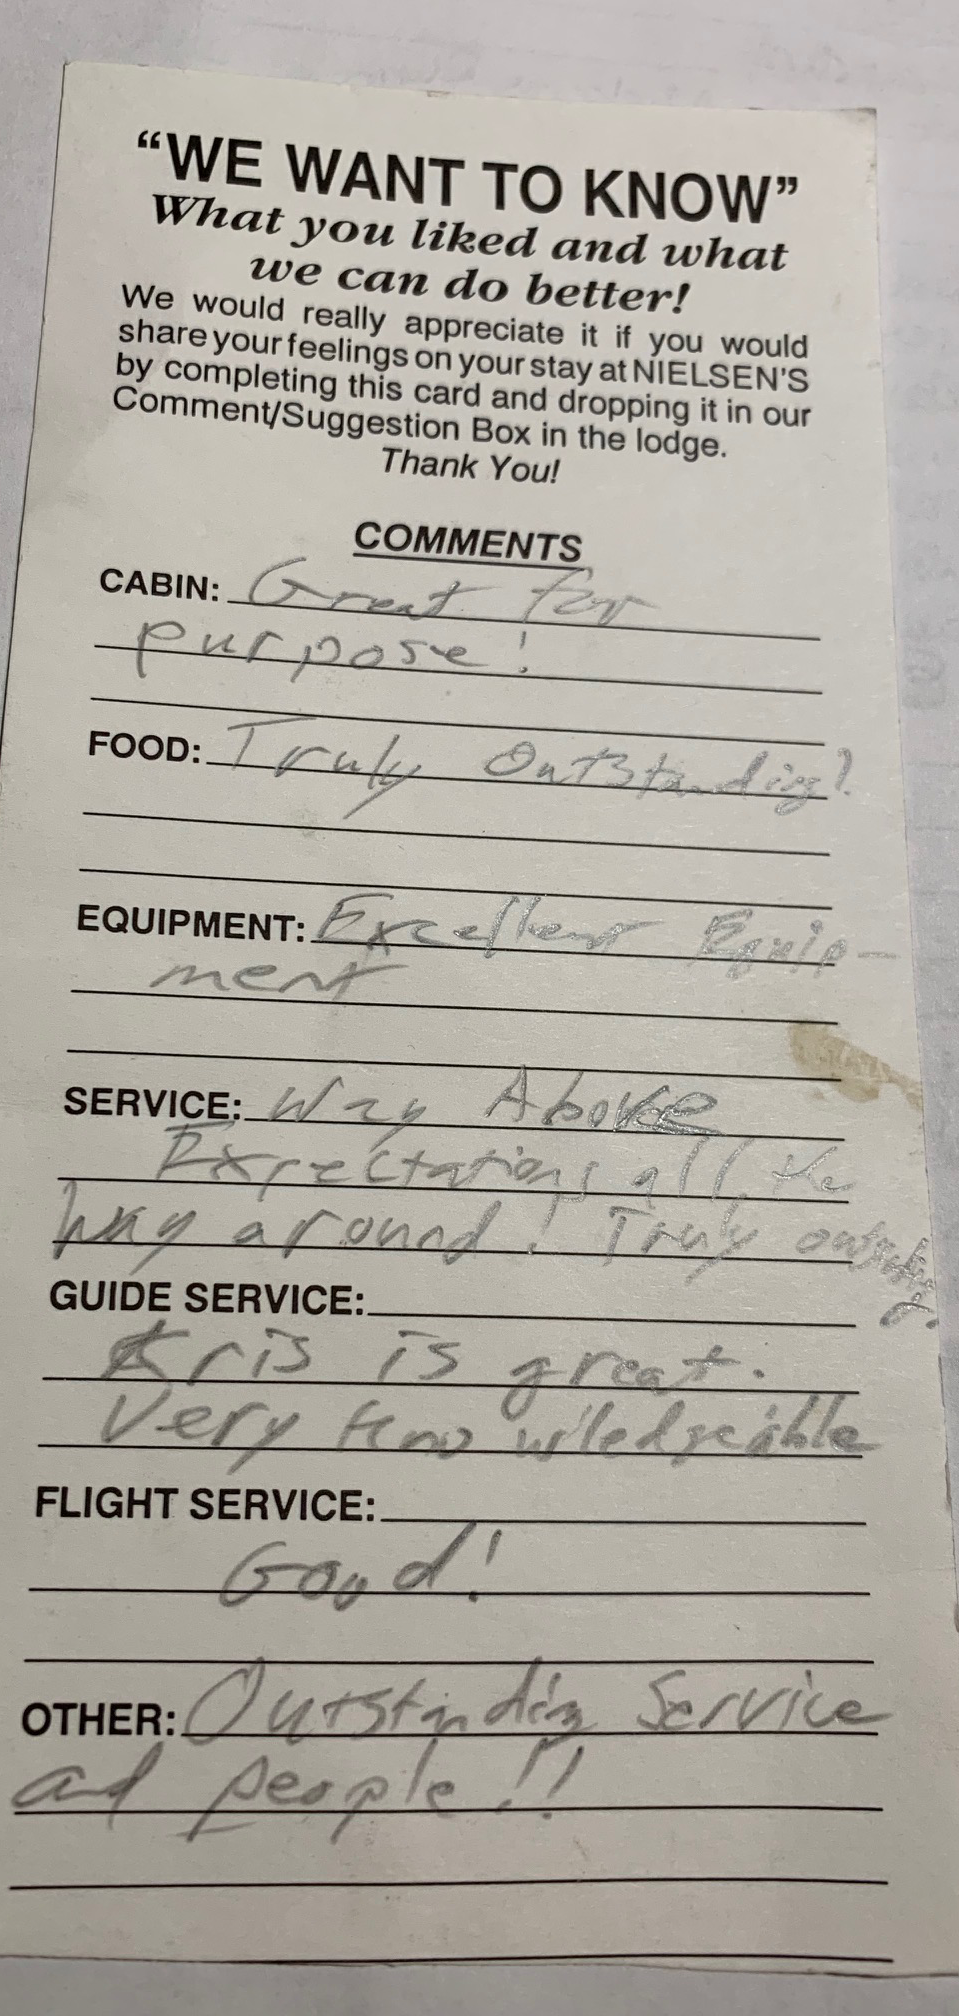 “WE WANT TO KNOW”
What you liked and what
we can do better!
We would really appreciate it if you would
share your feelings on your stay at NIELSEN'S
by completing this card and dropping it in our
Comment/Suggestion Box in the lodge.
Thank You!
COMMENTS
CABIN: Great for
purpose!
FOOD: Truly Outstanding!
EQUIPMENT: Excellent Equip-
ment
SERVICE: Way Above
Expectations all the
way around! Truly outstanding.
GUIDE SERVICE:
Kris is great.
Very knowledgeable
FLIGHT SERVICE:
Good!
OTHER: Outstanding Service
and people!!